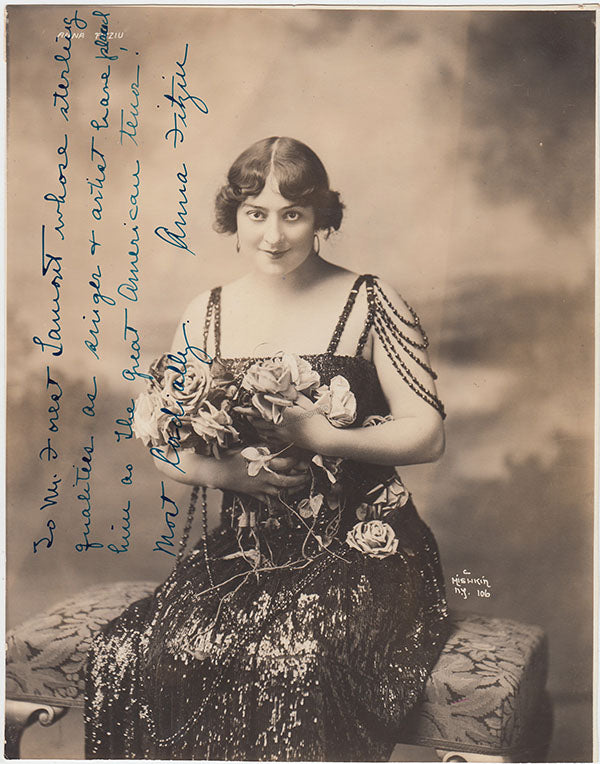 ANNA FITZIU
To Mr. Forest Lamont whose sterling
qualities as singer & artist have placed
him as the great American tenor.
Most Cordially
Anna Fitziu
©
MISHKIN
N.Y. 106